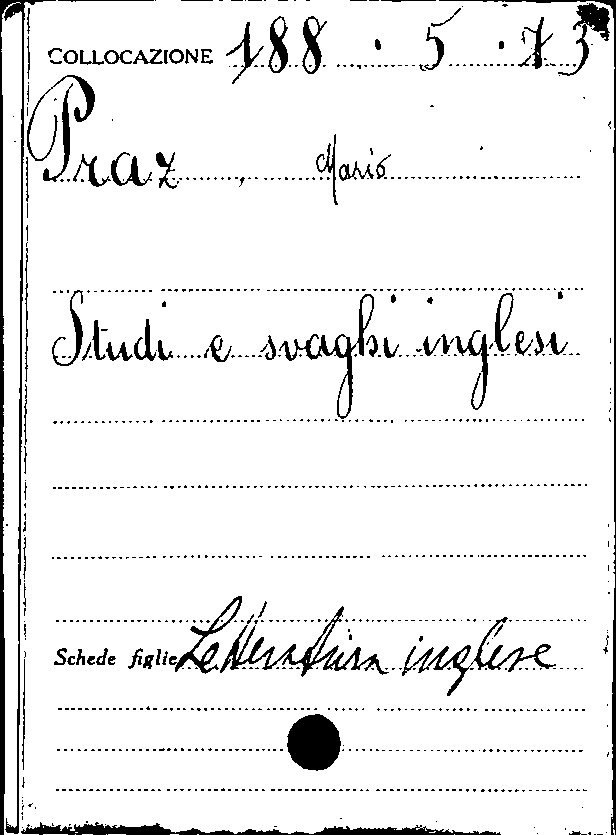 COLLOCAZIONE 188 . 5 . 73
Praz, Mario
Studi e svaghi inglesi
Schede figlie Letteratura inglese